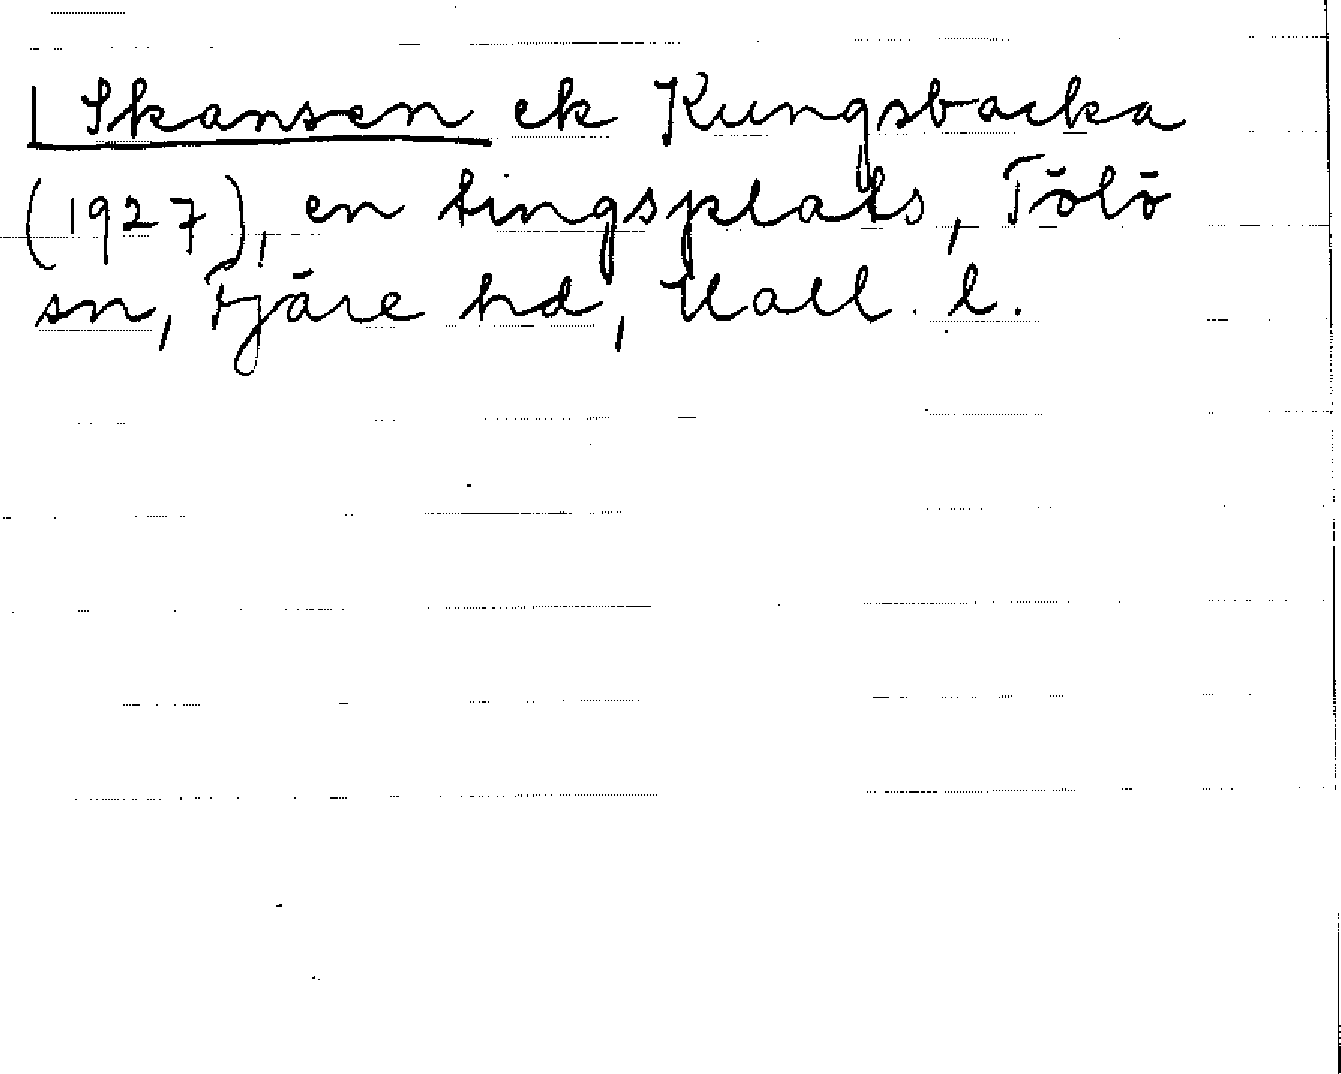 Skansen ek Kungsbacka
(1927), en tingsplats, Tölö
sn, Fjäre hd, Hall. l.